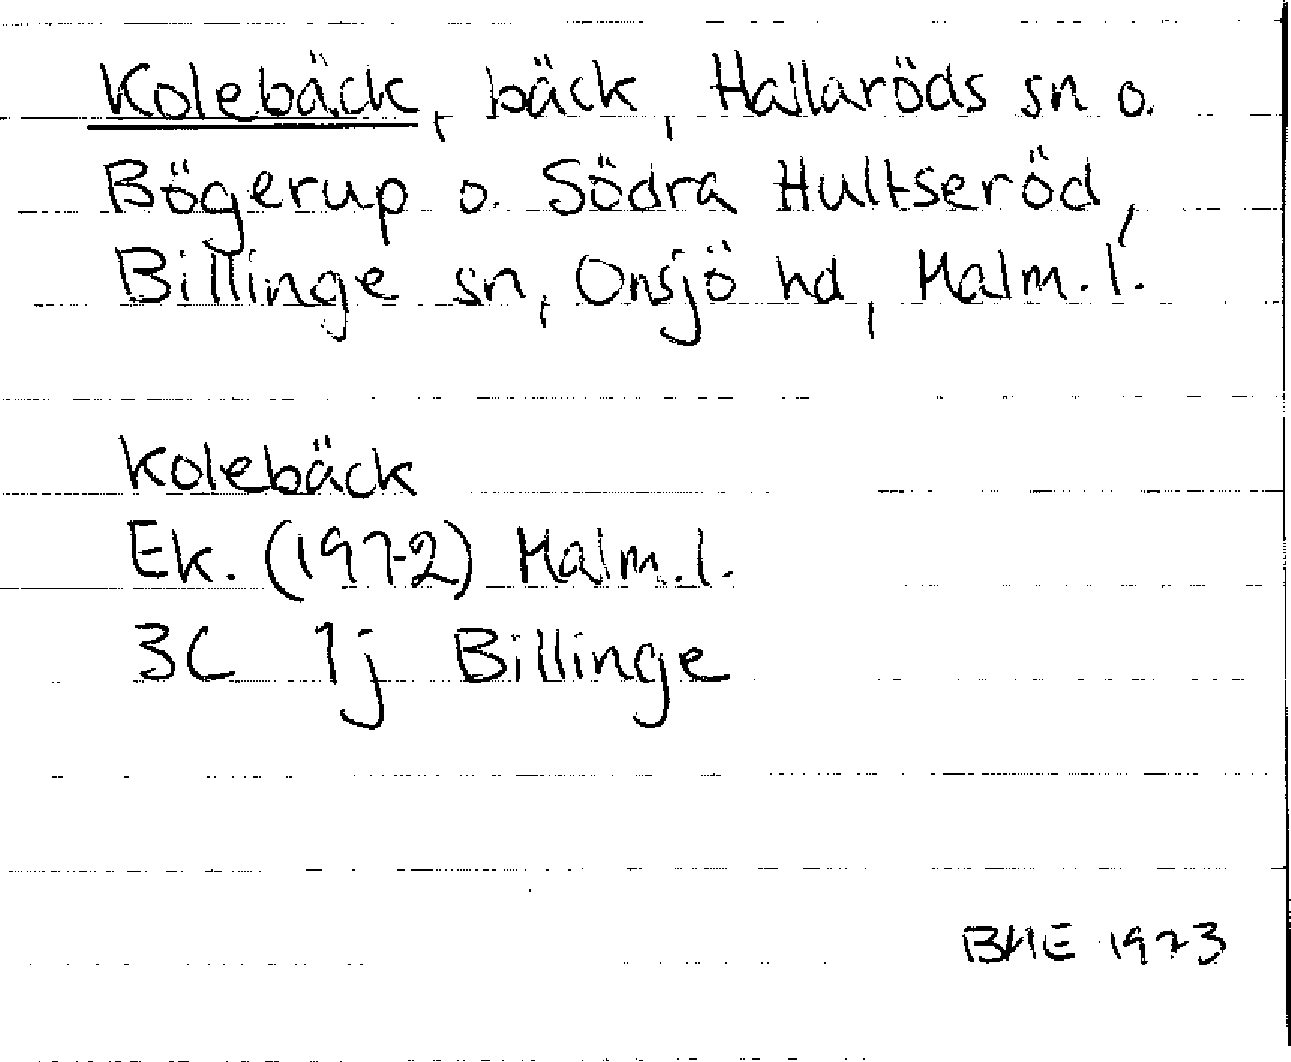 Kolebäck, bäck, Hallaröds sn o.
Bögerup o. Södra Hultseröd,
Billinge sn, Onsjö hd, Malm. l.
Kolebäck
Ek. (1972) Malm. l.
3C 1j Billinge
BME 1973